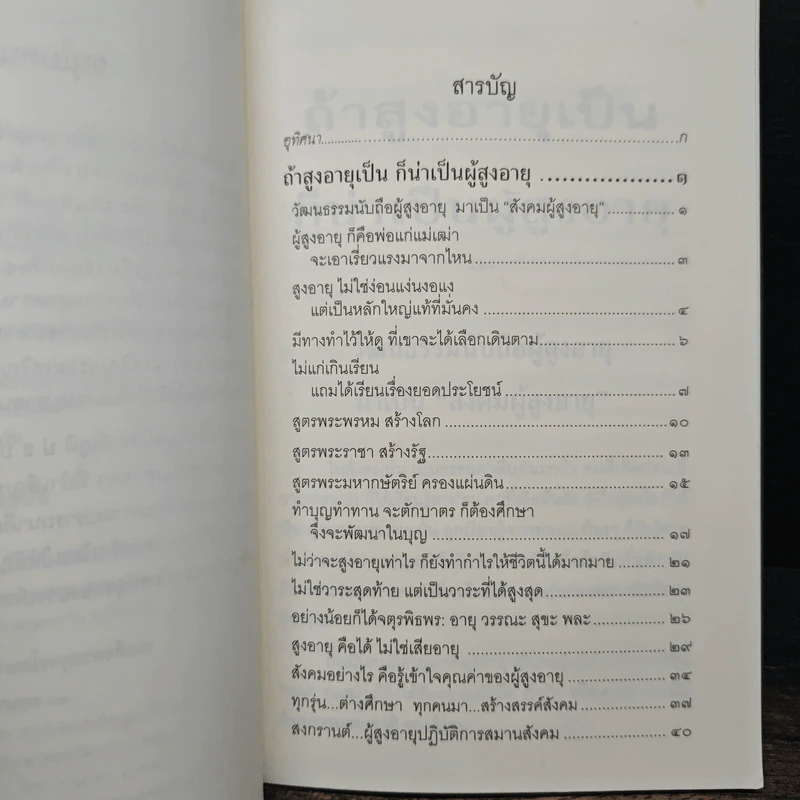 สารบัญ
อุทิศนา.....................................................................ก
ถ้าสูงอายุเป็น ก็น่าเป็นผู้สูงอายุ ...................๑
วัฒนธรรมนับถือผู้สูงอายุ มาเป็น “สังคมผู้สูงอายุ”...............๑
ผู้สูงอายุ ก็คือพ่อแก่แม่เฒ่า
จะเอาเรี่ยวแรงมาจากไหน.............................................๓
สูงอายุ ไม่ใช่ง่อนแง่นงอแง
แต่เป็นหลักใหญ่แท้ที่มั่นคง............................................๔
มีทางทำไว้ให้ดู ที่เขาจะได้เลือกเดินตาม...............................๖
ไม่แก่เกินเรียน
แถมได้เรียนเรื่องยอดประโยชน์......................................๗
สูตรพระพรหม สร้างโลก..................................................๑๐
สูตรพระราชา สร้างรัฐ.....................................................๑๓
สูตรพระมหากษัตริย์ ครองแผ่นดิน....................................๑๕
ทำบุญทำทาน จะตักบาตร ก็ต้องศึกษา
จึงจะพัฒนาในบุญ....................................................๑๗
ไม่ว่าจะสูงอายุเท่าไร ก็ยังทำกำไรให้ชีวิตนี้ได้มากมาย...........๒๑
ไม่ใช่วาระสุดท้าย แต่เป็นวาระที่ได้สูงสุด.............................๒๓
อย่างน้อยก็ได้จตุรพิธพร: อายุ วรรณะ สุขะ พละ..................๒๖
สูงอายุ คือได้ ไม่ใช่เสียอายุ .............................................๒๙
สังคมอย่างไร คือรู้เข้าใจคุณค่าของผู้สูงอายุ........................๓๔
ทุกรุ่น...ต่างศึกษา ทุกคนมา...สร้างสรรค์สังคม.....................๓๗
สงกรานต์...ผู้สูงอายุปฏิบัติการสมานสังคม.........................๔๐